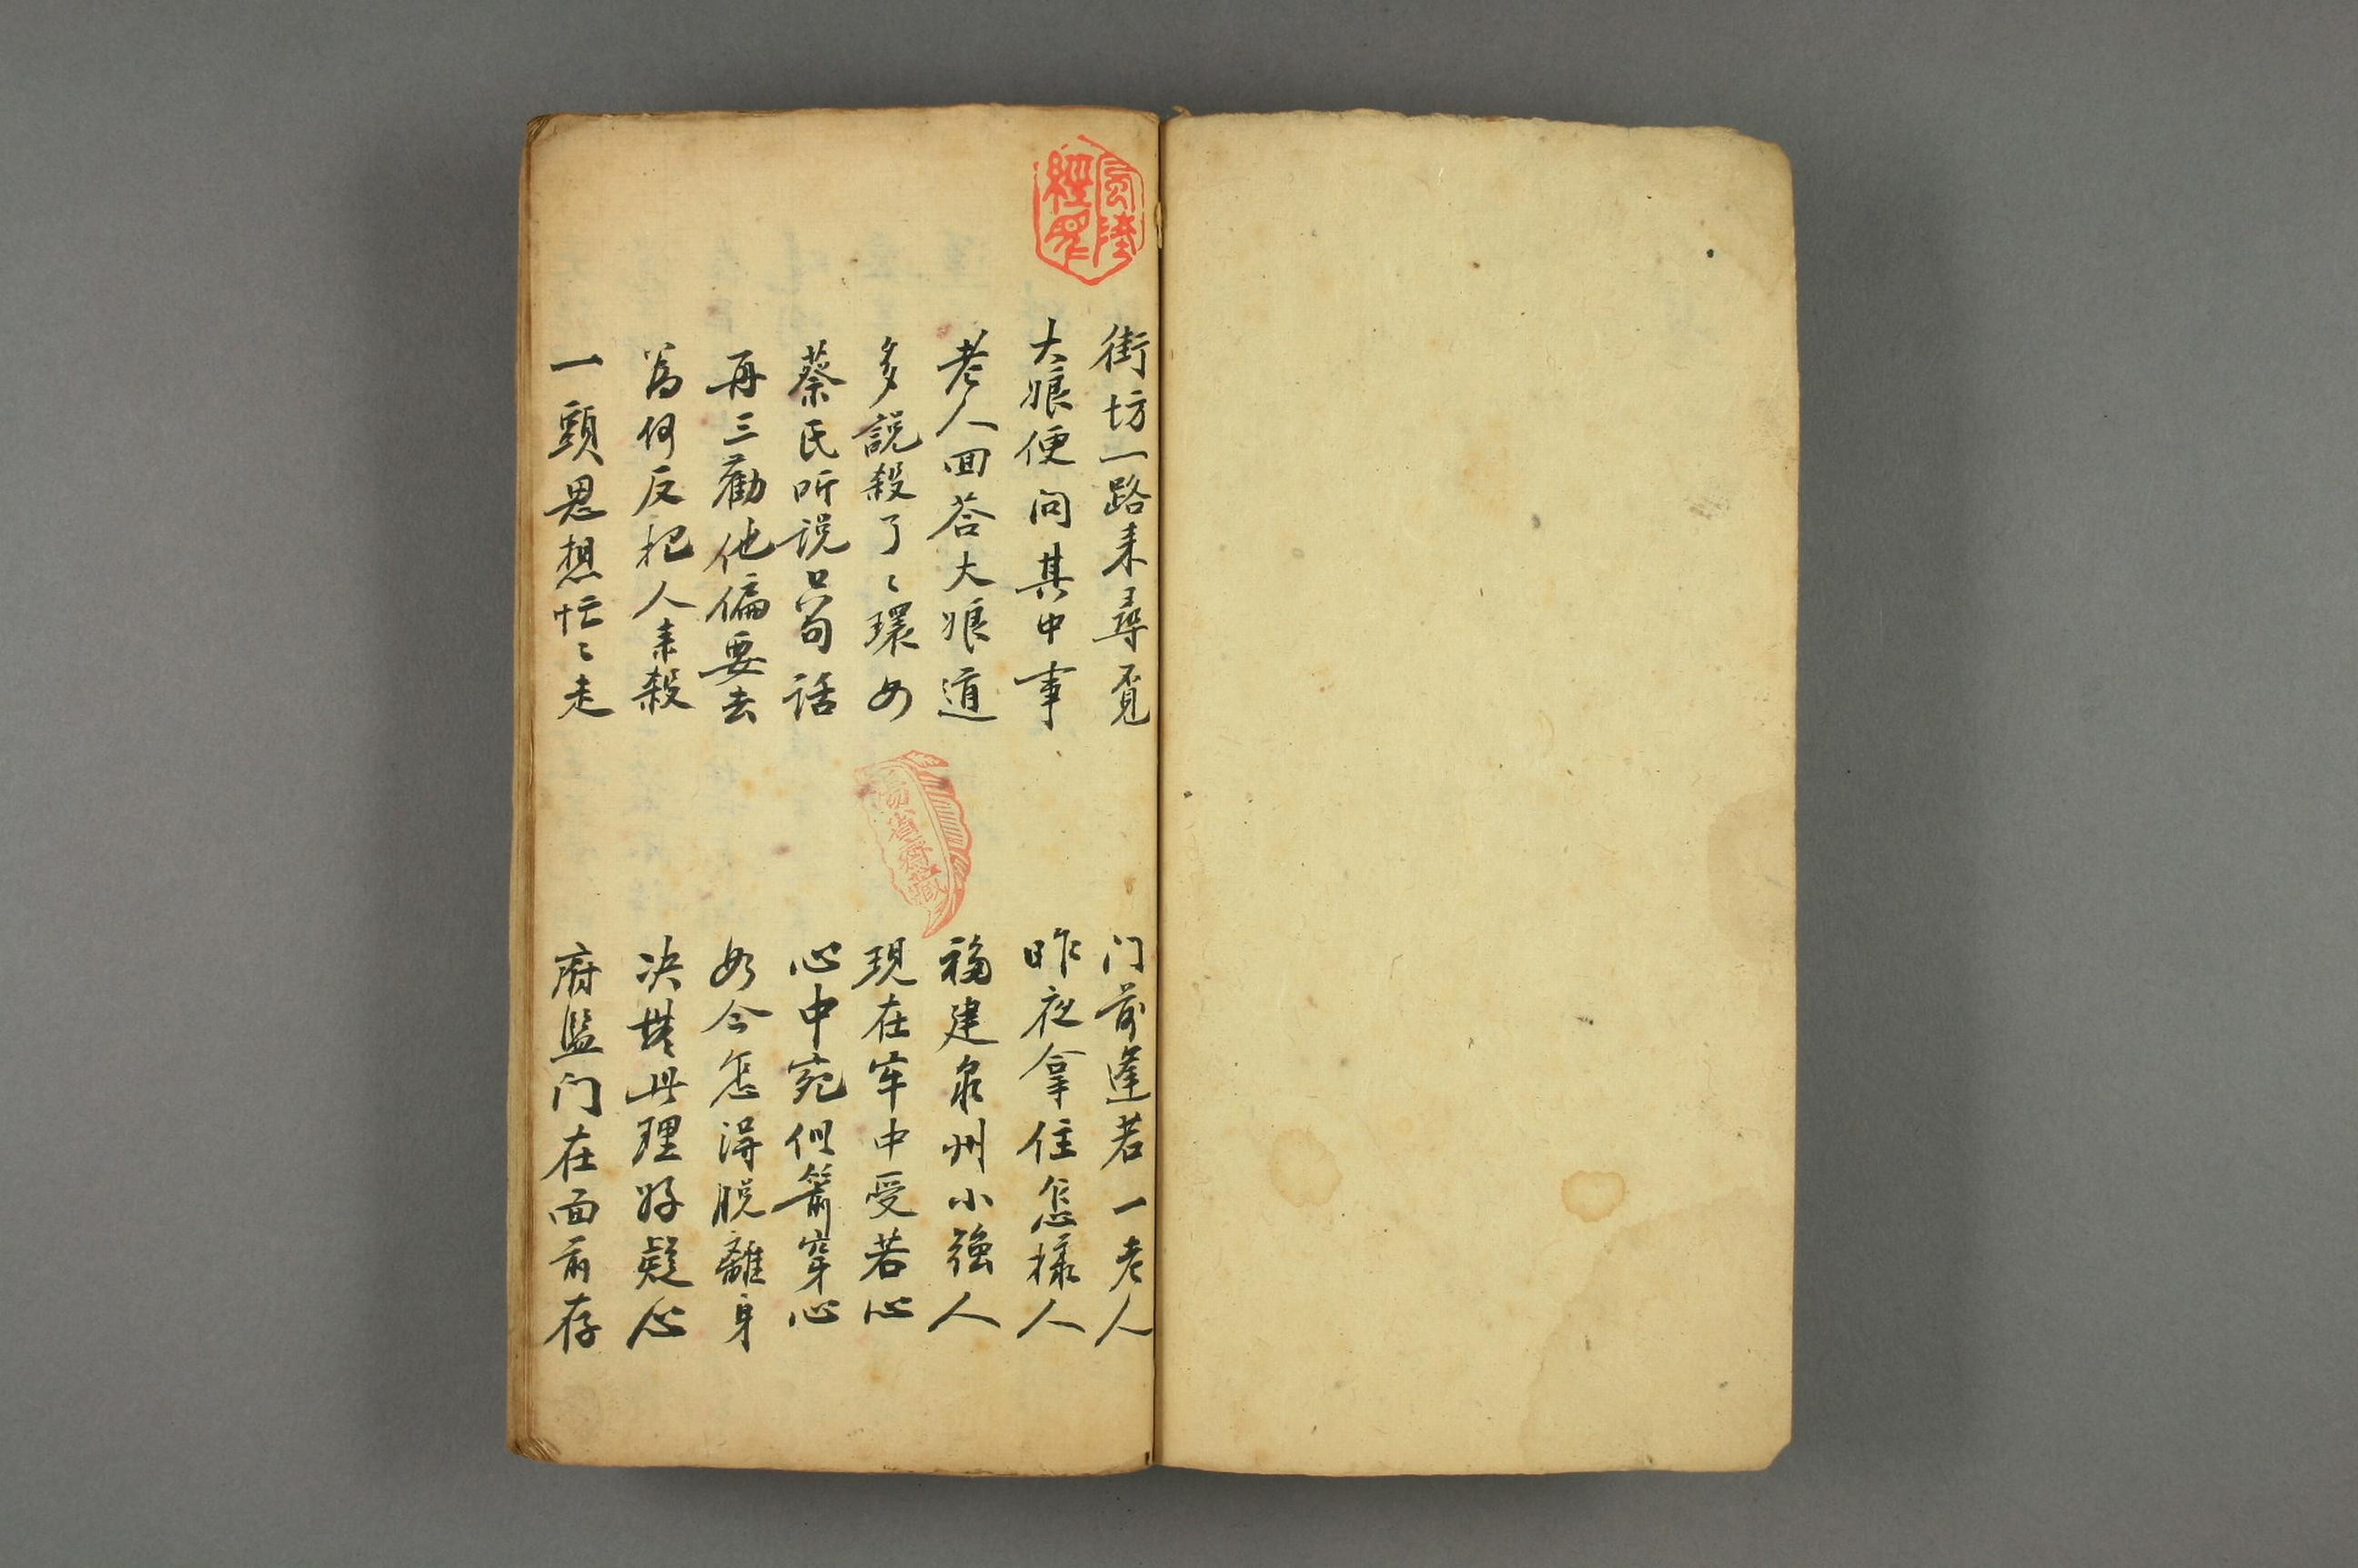 街坊一路来尋覓 门前逢着一老人
大娘便问其中事 昨夜拿住怎様人
老人囬荅大娘道 福建泉州小強人
多説殺了〻環女 現在牢中受若心
蔡氏听说只句話 心中宛似箭穿心
再三勸他偏要去 如今怎得脱離身
為何反把人来殺 决無此理好疑心
一頭思想忙〻走 府監门在面前存